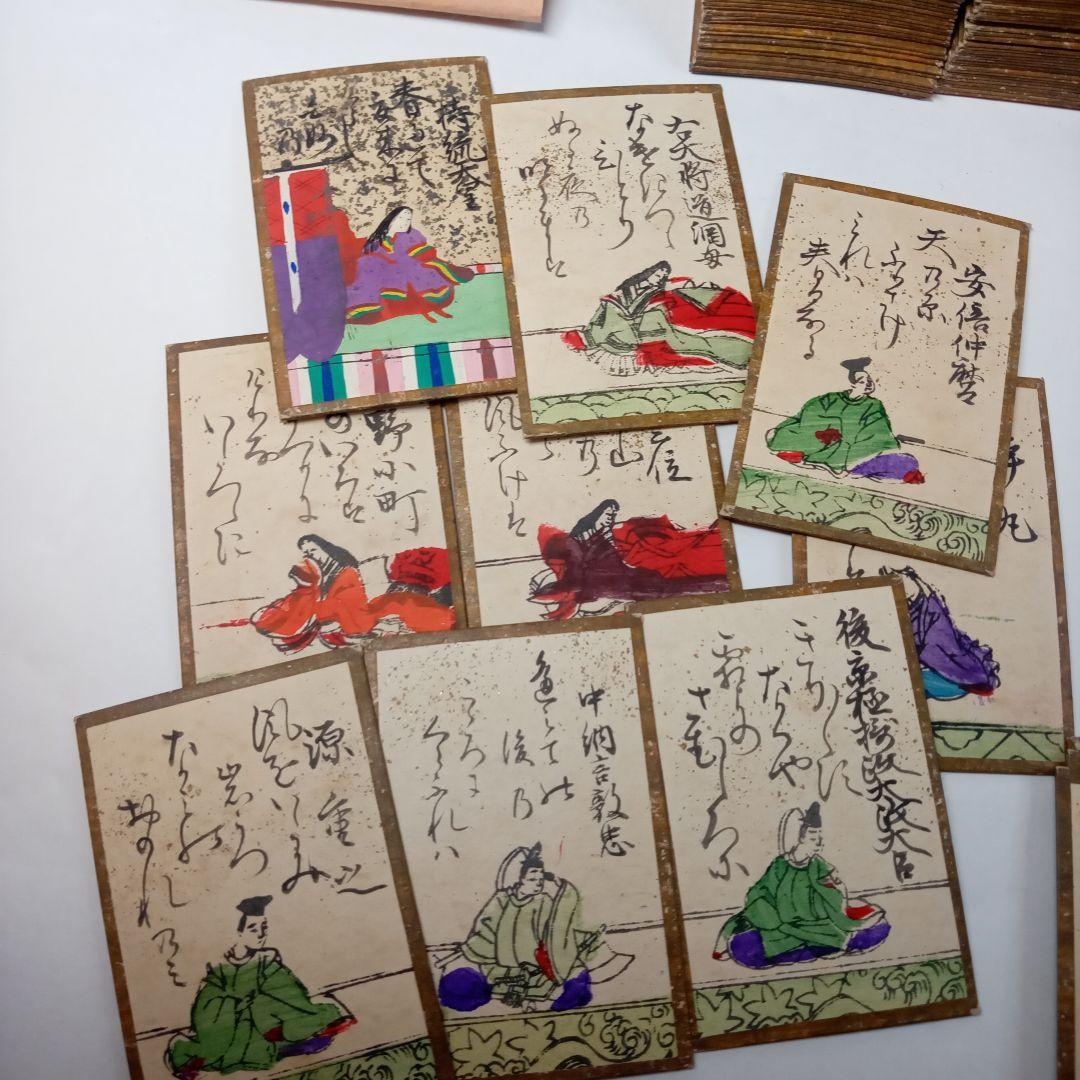 持統天皇
春過て
夏来に
けらし
右大将道綱母
なけきつゝ
ひとり
ぬる夜乃
明るまは
安倍仲麿
天乃原
ふりさけ
みれハ
春日なる
野小町
のいろは
つりに
けりな
いたつらに
位
山
乃
風ふけは
丸
源重之
風をいたみ
岩うつ
なみの
おのれのミ
中納言敦忠
逢みての
後乃
こゝろに
くらふれハ
後京極摂政太政大臣
きり／＼す
なくや
霜よの
さむしろに